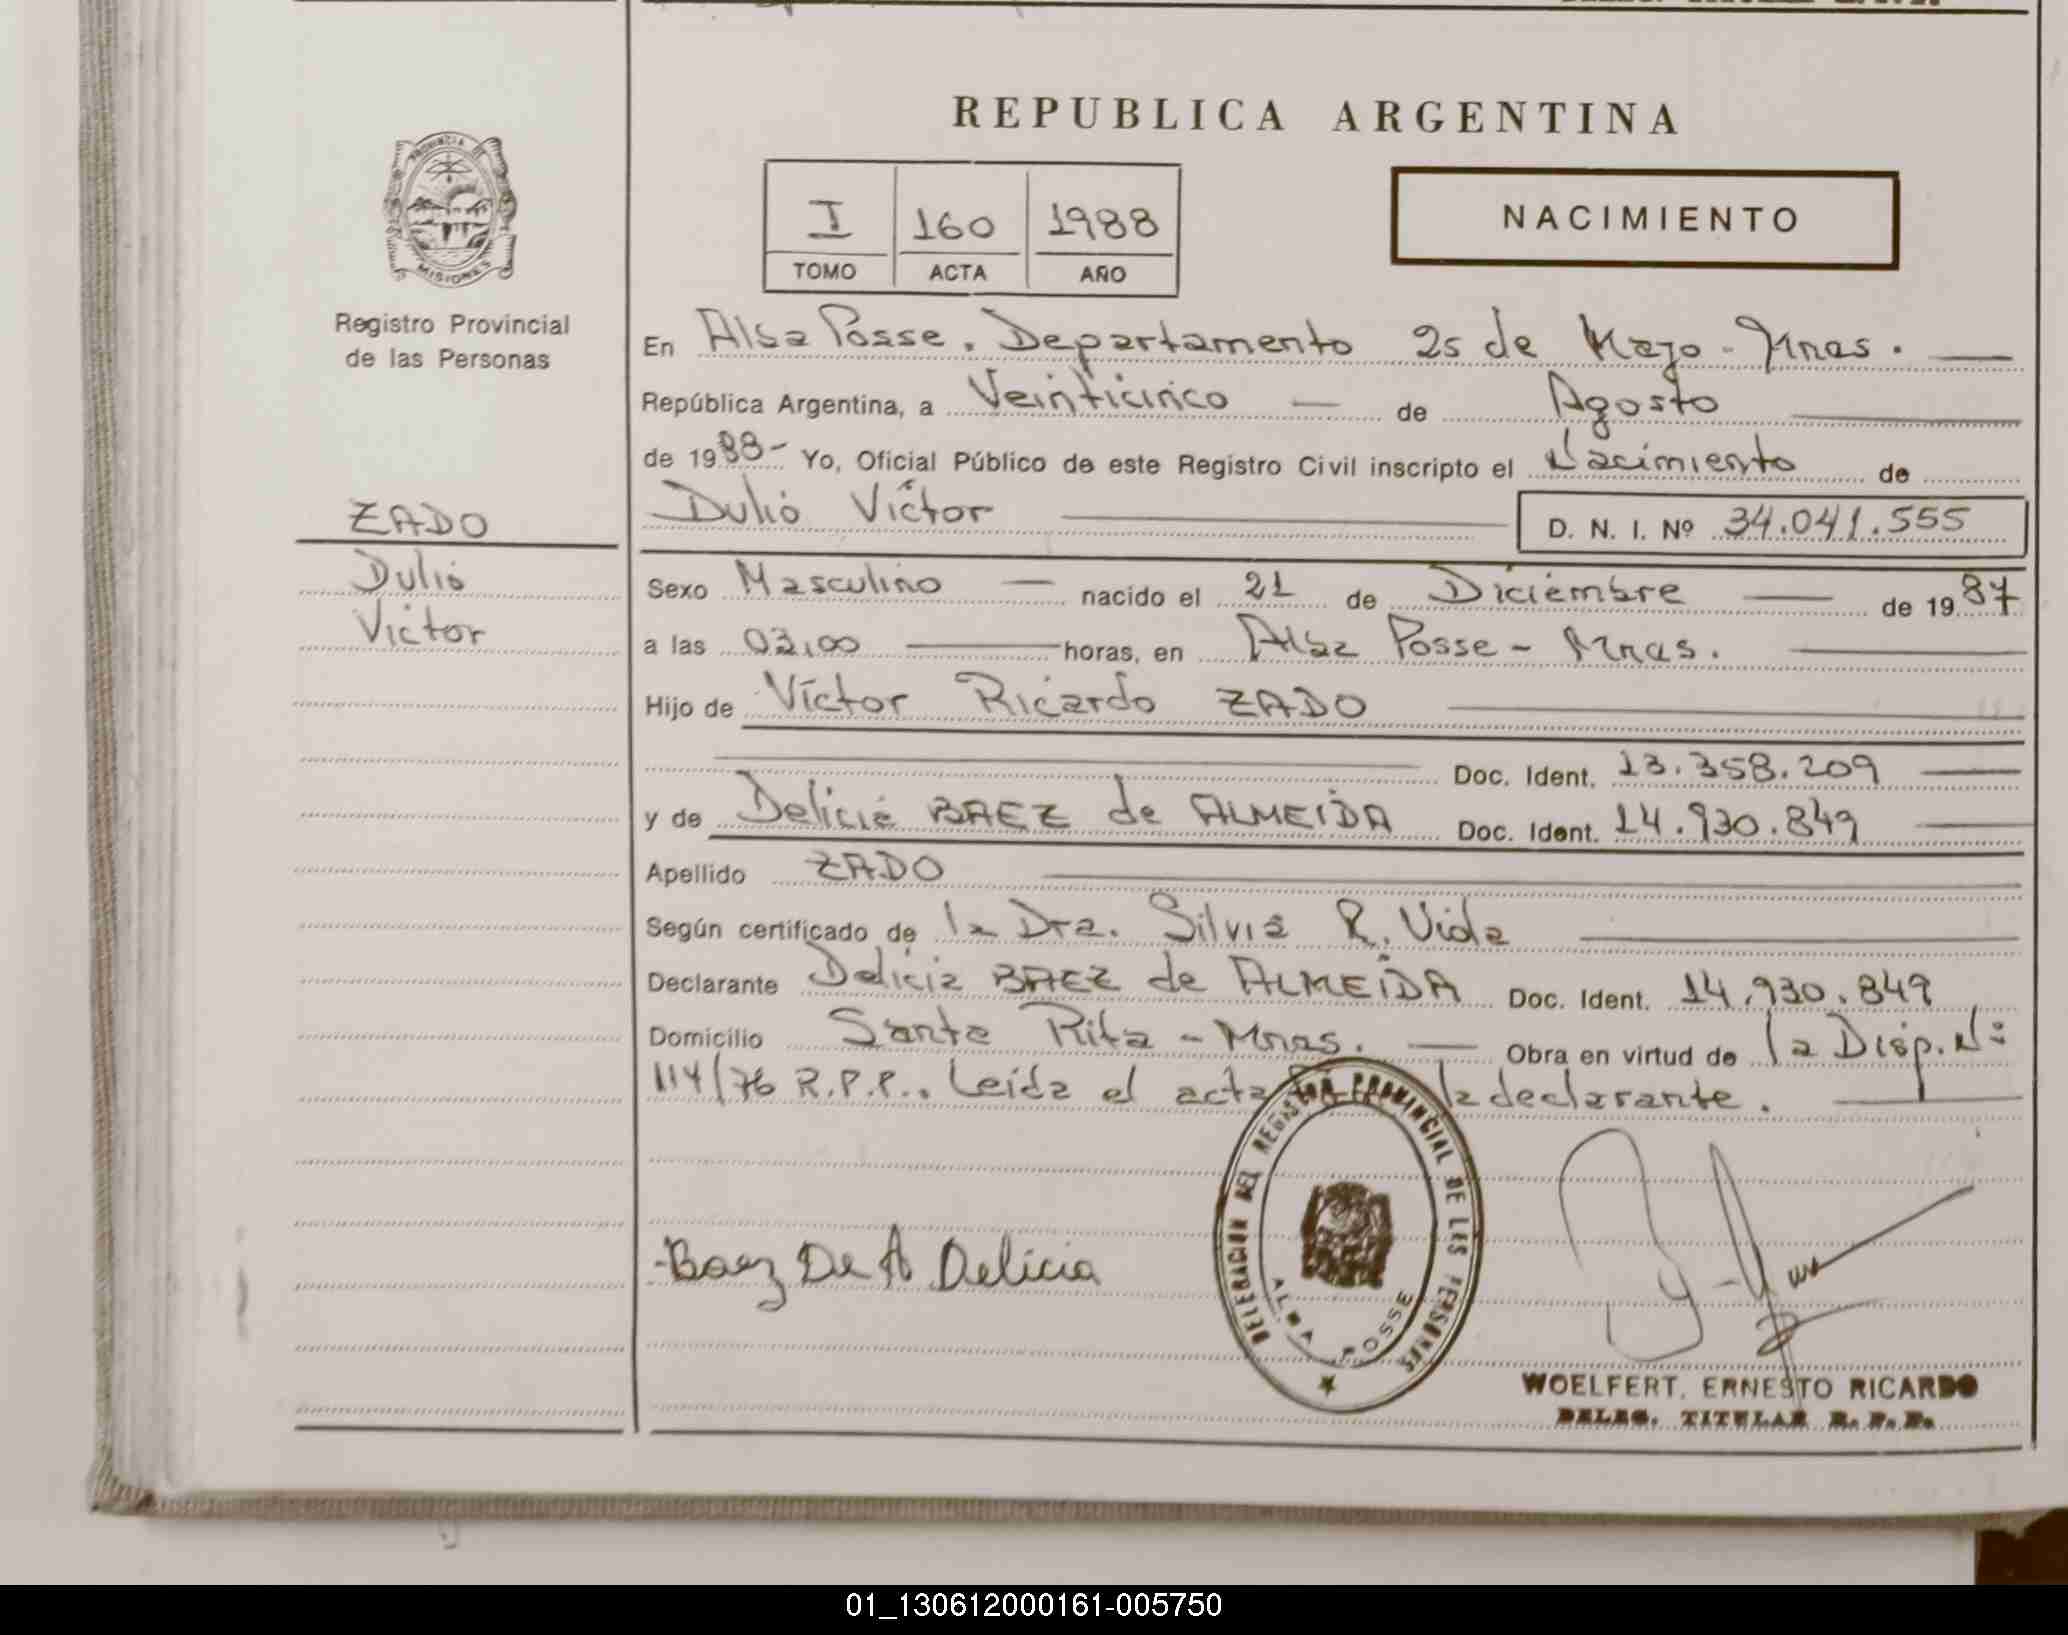 REPUBLICA ARGENTINA
PROVINCIA DE
MISIONES
Registro Provincial
de las Personas
I 160 1988
TOMO ACTA AÑO
NACIMIENTO
En Alba Posse. Departamento 25 de Mayo - Mnas.
República Argentina, a Veinticinco de Agosto
de 1988- Yo, Oficial Público de este Registro Civil inscripto el Nacimiento de
ZADO
Dulio Víctor
D. N. I. Nº 34.041.555
Dulio
Victor
Sexo Masculino nacido el 21 de Diciembre de 1987
a las 03,00 horas, en Alba Posse - Mnas.
Hijo de Víctor Ricardo ZADO
Doc. Ident. 13.358.209
y de Delicia BAEZ de ALMEIDA Doc. Ident. 14.930.849
Apellido ZADO
Según certificado de la Dra. Silvia R. Vida
Declarante Delicia BAEZ de ALMEIDA Doc. Ident. 14.930.849
Domicilio Santa Rita - Mnas. Obra en virtud de la Disp. Nº
114/76 R.P.P.. Leída el acta la declarante.
DELEGACION DEL REGISTRO PROVINCIAL DE LAS PERSONAS
ALBA POSSE
Baez De A Delicia
WOELFERT, ERNESTO RICARDO
DELEG. TITULAR R. P. P.
01_130612000161-005750